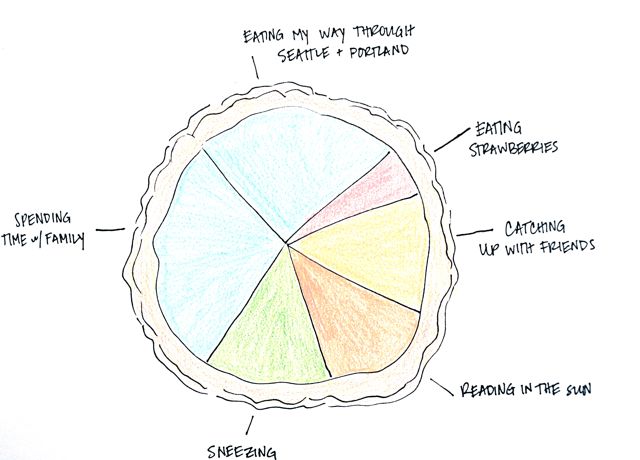 EATING MY WAY THROUGH
SEATTLE + PORTLAND
EATING
STRAWBERRIES
SPENDING
TIME w/ FAMILY
CATCHING
UP WITH FRIENDS
READING IN THE SUN
SNEEZING